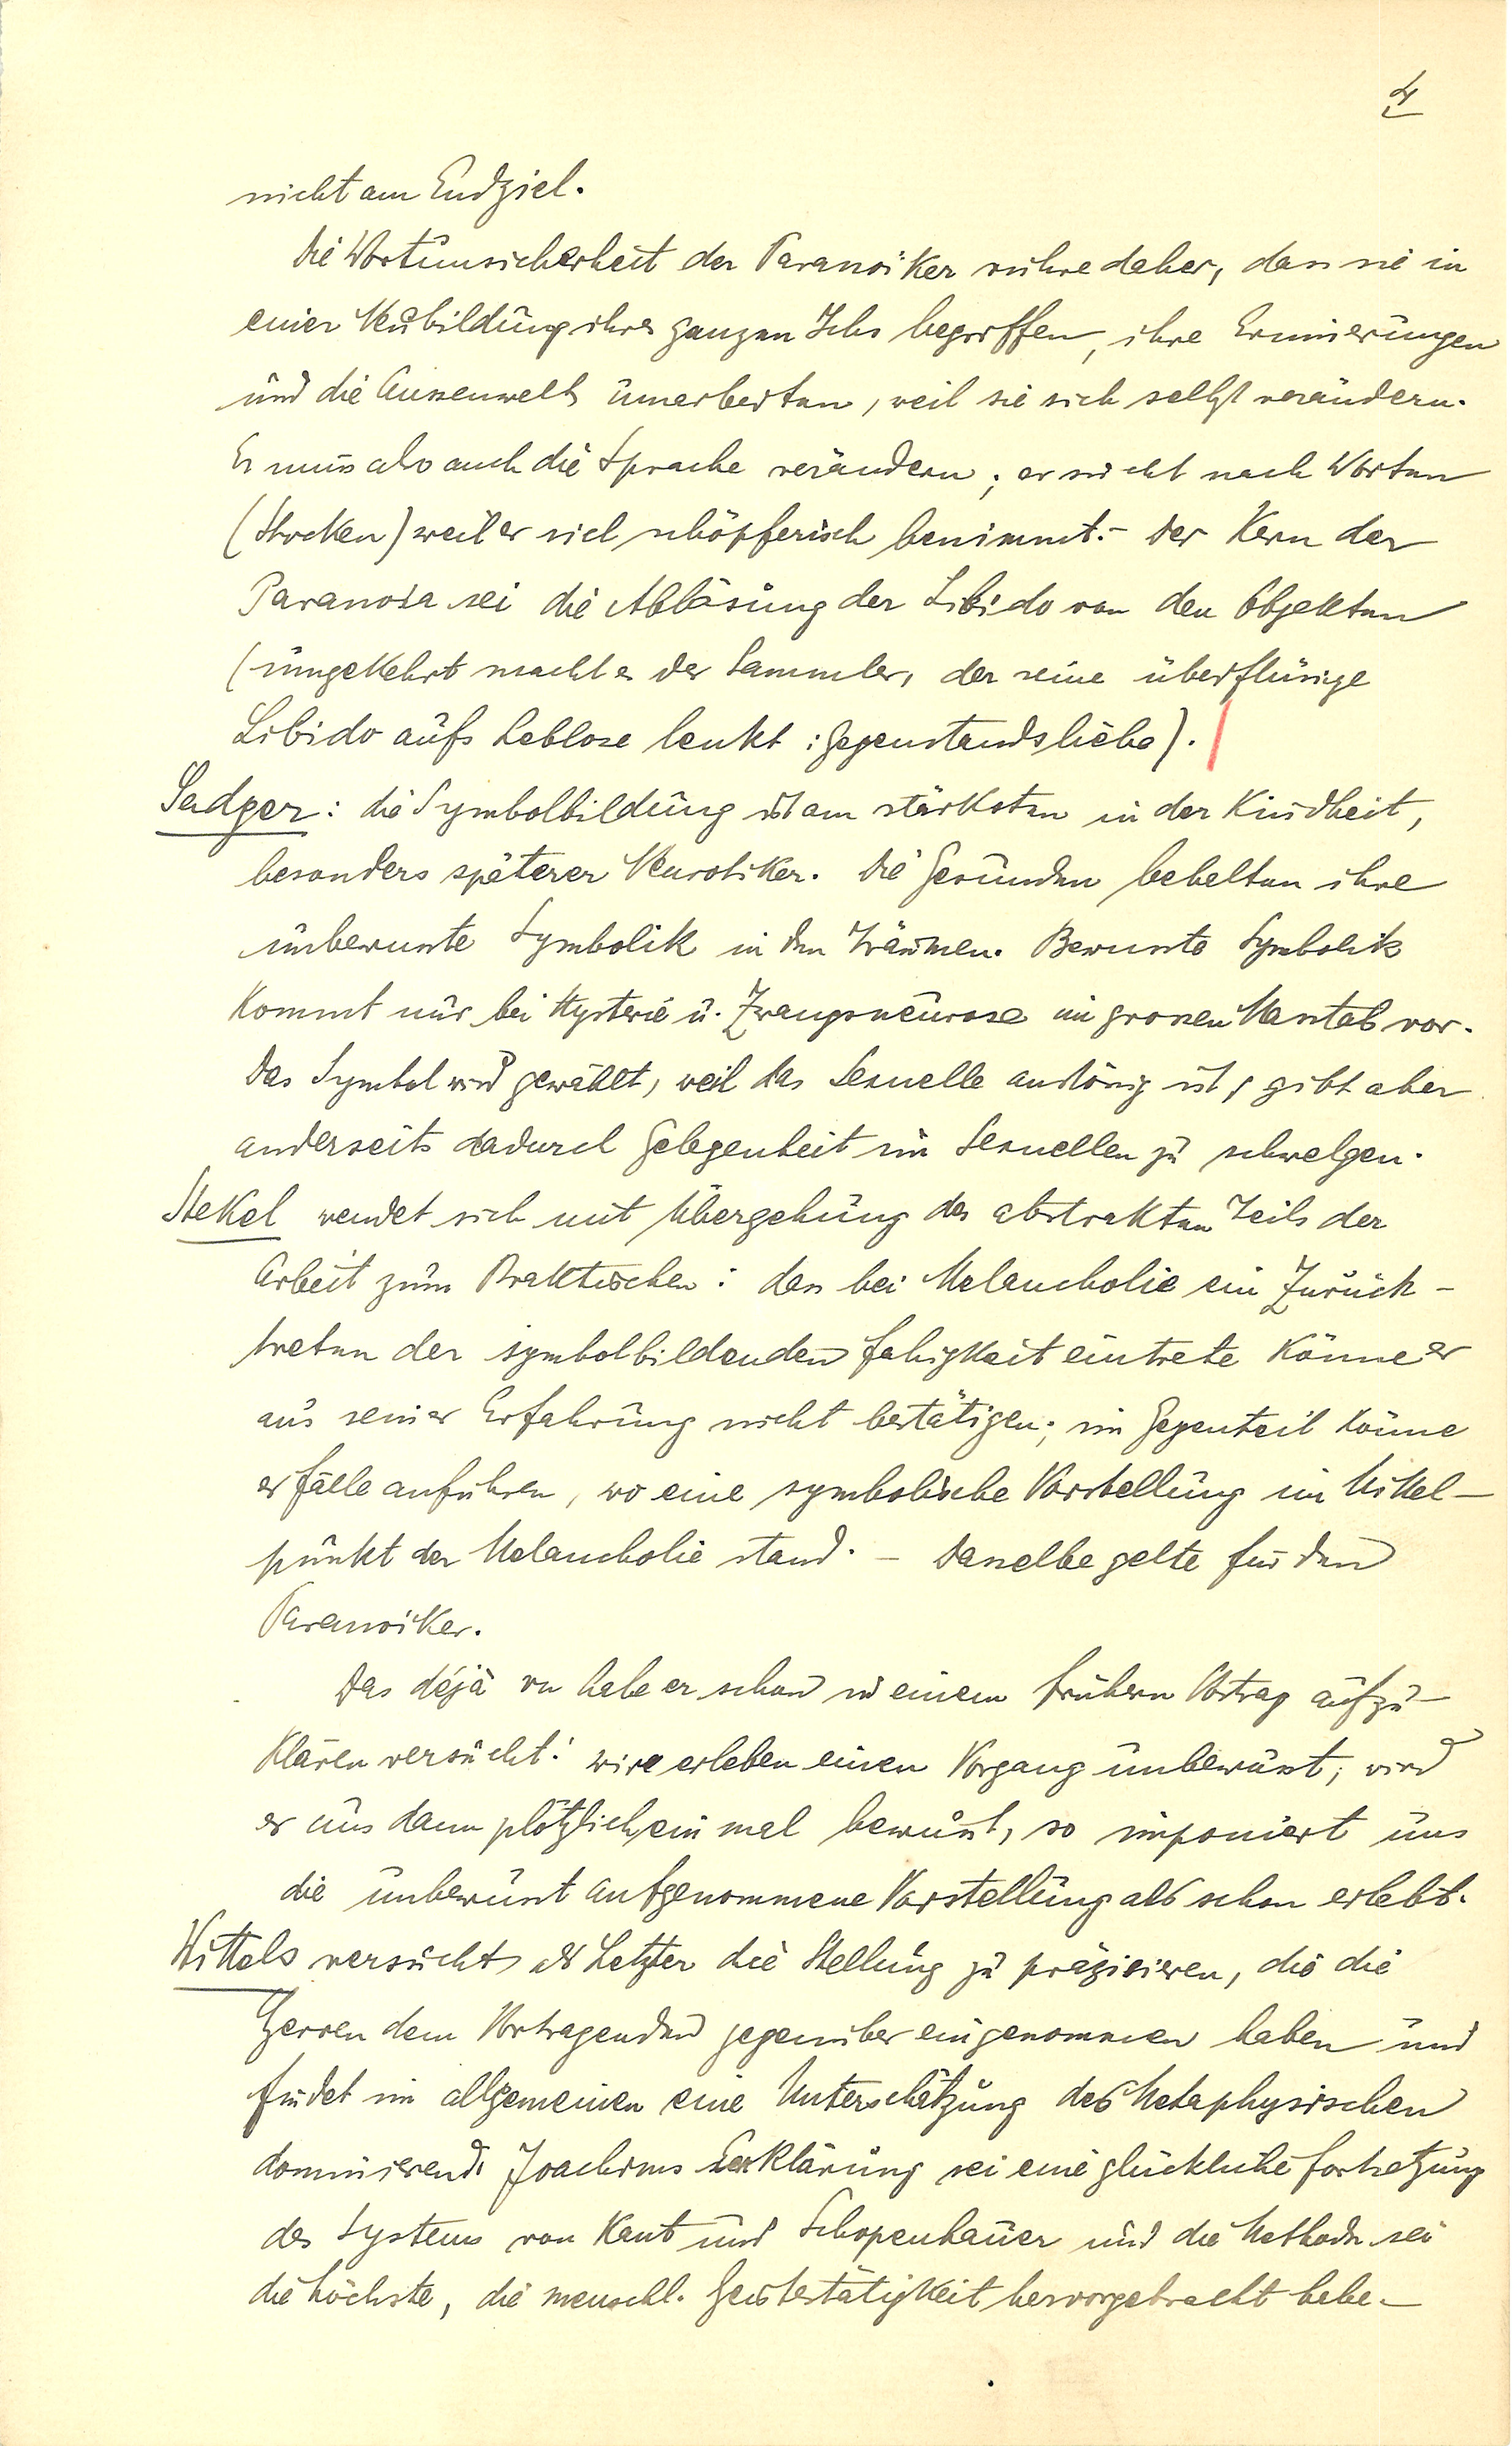 4
nicht am Endziel.
Die Wortunsicherheit der Paranoiker rühre daher, dass sie in
einer Neubildung ihres ganzen Ichs begriffen, ihre Erinnerungen
und die Aussenwelt umarbeiten, weil sie sich selbst verändern.
Er muss also auch die Sprache verändern; er sucht nach Worten
(Stocken) weil er sich schöpferisch benimmt. – Der Kern der
Paranoia sei die Ablösung der Libido von den Objekten
(umgekehrt macht es der Sammler, der seine überflüssige
Libido aufs Leblose lenkt: Gegenstandsliebe).
Sadger: die Symbolbildung ist am stärksten in der Kindheit,
besonders späterer Neurotiker. Die Gesunden behalten ihre
unbewusste Symbolik in den Träumen. Bewusste Symbolik
kommt nur bei Hysterie u. Zwangsneurose im grossen Masstab vor.
Das Symbol wird gewählt, weil das Sexuelle anstössig ist, gibt aber
anderseits dadurch Gelegenheit im Sexuellen zu schwelgen.
Stekel wendet sich mit Übergehung des abstrakten Teils der
Arbeit zum Praktischen: dass bei Melancholie ein Zurück-
treten der symbolbildenden Fähigkeit eintrete könne er
aus seiner Erfahrung nicht bestätigen; im Gegenteil könne
er Fälle anführen, wo eine symbolische Vorstellung im Mittel-
punkt der Melancholie stand. – Dasselbe gelte für den
Paranoiker.
Das déjà vu habe er schon in einem frühern Vortrag aufzu-
klären versucht: wir erleben einen Vorgang unbewusst; wird
er uns dann plötzlich einmal bewusst, so imponiert uns
die unbewusst aufgenommene Vorstellung als schon erlebt.
Wittels versucht als Letzter die Stellung zu präzisieren, die die
Herren dem Vortragenden gegenüber eingenommen haben und
findet im allgemeinen eine Unterschätzung des Metaphysischen
dominierend. Joachims Erklärung sei eine glückliche Fortsetzung
des Systems von Kant und Schopenhauer und die Methode sei
die höchste, die menschl. Geistestätigkeit hervorgebracht habe. –